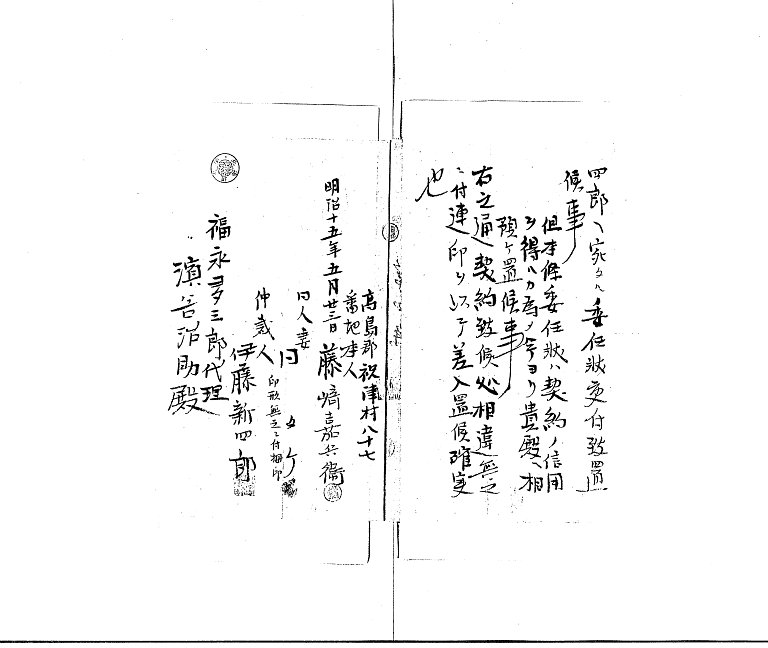 四郎ヘ宛タル委任状受付致置
候事
但本條委任状ハ契約ノ信用
ヲ得ハカ為メ今ヨリ貴殿ヘ相
預ケ置候事
右之通契約致候処相違無之
ニ付連印ヲ以テ差入置候確実
也
高島郡祝津村八十七
番地本人
明治十五年五月廿三日 藤嵜嘉兵衞
同人妻
同
印形無之ニ付拇印
仲裁人
伊藤新四郎
福永多三郎代理
濱谷治助殿